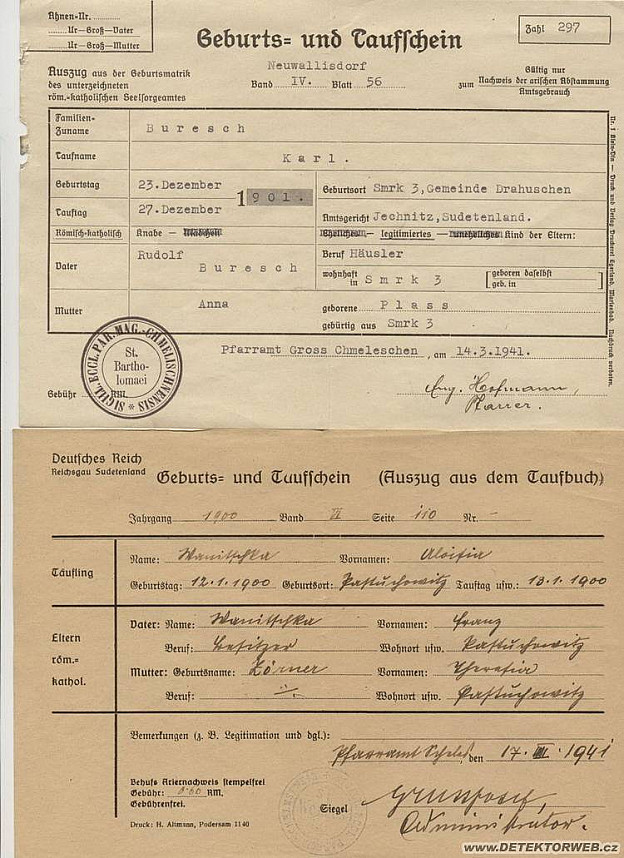 Ahnen-Nr.
Ur-Groß-Vater
Ur-Groß-Mutter
Geburts= und Taufschein
Zahl 297
Auszug aus der Geburtsmatrik
des unterzeichneten
röm.-katholischen Seelsorgeamtes
Neuwallisdorf
Band IV. Blatt 56
zum
Gültig nur
Nachweis der arischen Abstammung
Amtsgebrauch
Familien-
Zuname
Buresch
Taufname
Karl.
Geburtstag
23.Dezember
1901.
Geburtsort Smrk 3,Gemeinde Drahuschen
Tauftag
27.Dezember
Amtsgericht Jechnitz,Sudetenland.
Römisch-katholisch
Knabe – Mädchen
Eheliches – legitimiertes – uneheliches Kind der Eltern:
Vater
Rudolf
Buresch
Beruf Häusler
wohnhaft
in Smrk 3
geboren daselbst
geb. in
Mutter
Anna
geborene Plass
gebürtig aus Smrk 3
SIGILL. ECCL. PAR. MAG.-CHMELISCHNENSIS
St.
Bartho-
lomaei
Pfarramt Gross Chmeleschen, am 14.3.1941.
Gebühr RM.
Aug. Hofmann,
Pfarrer.
Deutsches Reich
Reichsgau Sudetenland
Geburts= und Taufschein (Auszug aus dem Taufbuch)
Jahrgang 1900 Band VI Seite 110 Nr. –
Täufling
Name: Wanitschka Vornamen: Aloisia
Geburtstag: 12.1.1900 Geburtsort: Pastuchowitz Tauftag usw.: 13.1.1900
Eltern
röm.=
kathol.
Vater: Name: Wanitschka Vornamen: Franz
Beruf: Besitzer Wohnort usw. Pastuchowitz
Mutter: Geburtsname: Zörner Vornamen: Theresia
Beruf: Wohnort usw. Pastuchowitz
Bemerkungen (z. B. Legitimation und dgl.):
Pfarramt Scheles, den 17. III. 1941
Behufs Ariernachweis stempelfrei
Gebühr: 0.60 RM.
Gebührenfrei.
Siegel
Administrator.
Druck: H. Altmann, Podersam 1140
www.DETEKTORWEB.cz